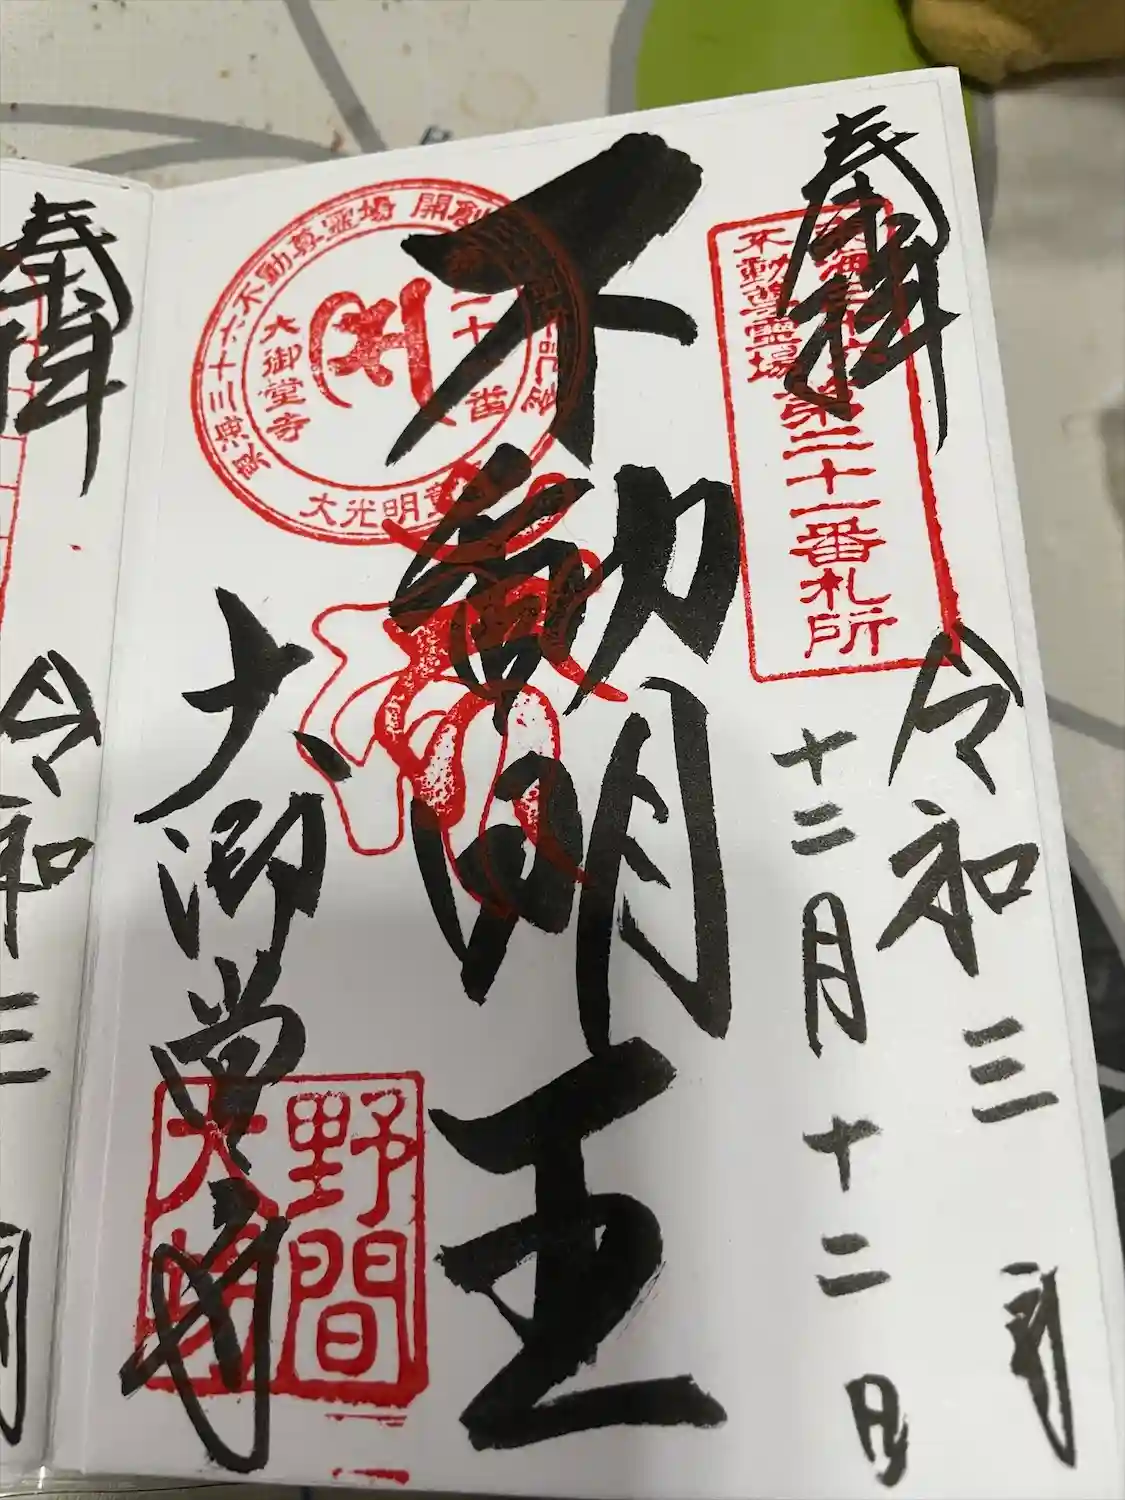 奉拝
東海三十六
不動尊霊場
第三十一番札所
令和三
十二月十二日
不動明王
東海三十六不動尊霊場 開創
三十一番
大御堂寺
大光明
大御堂寺
野間
大坊
奉拝
令和三